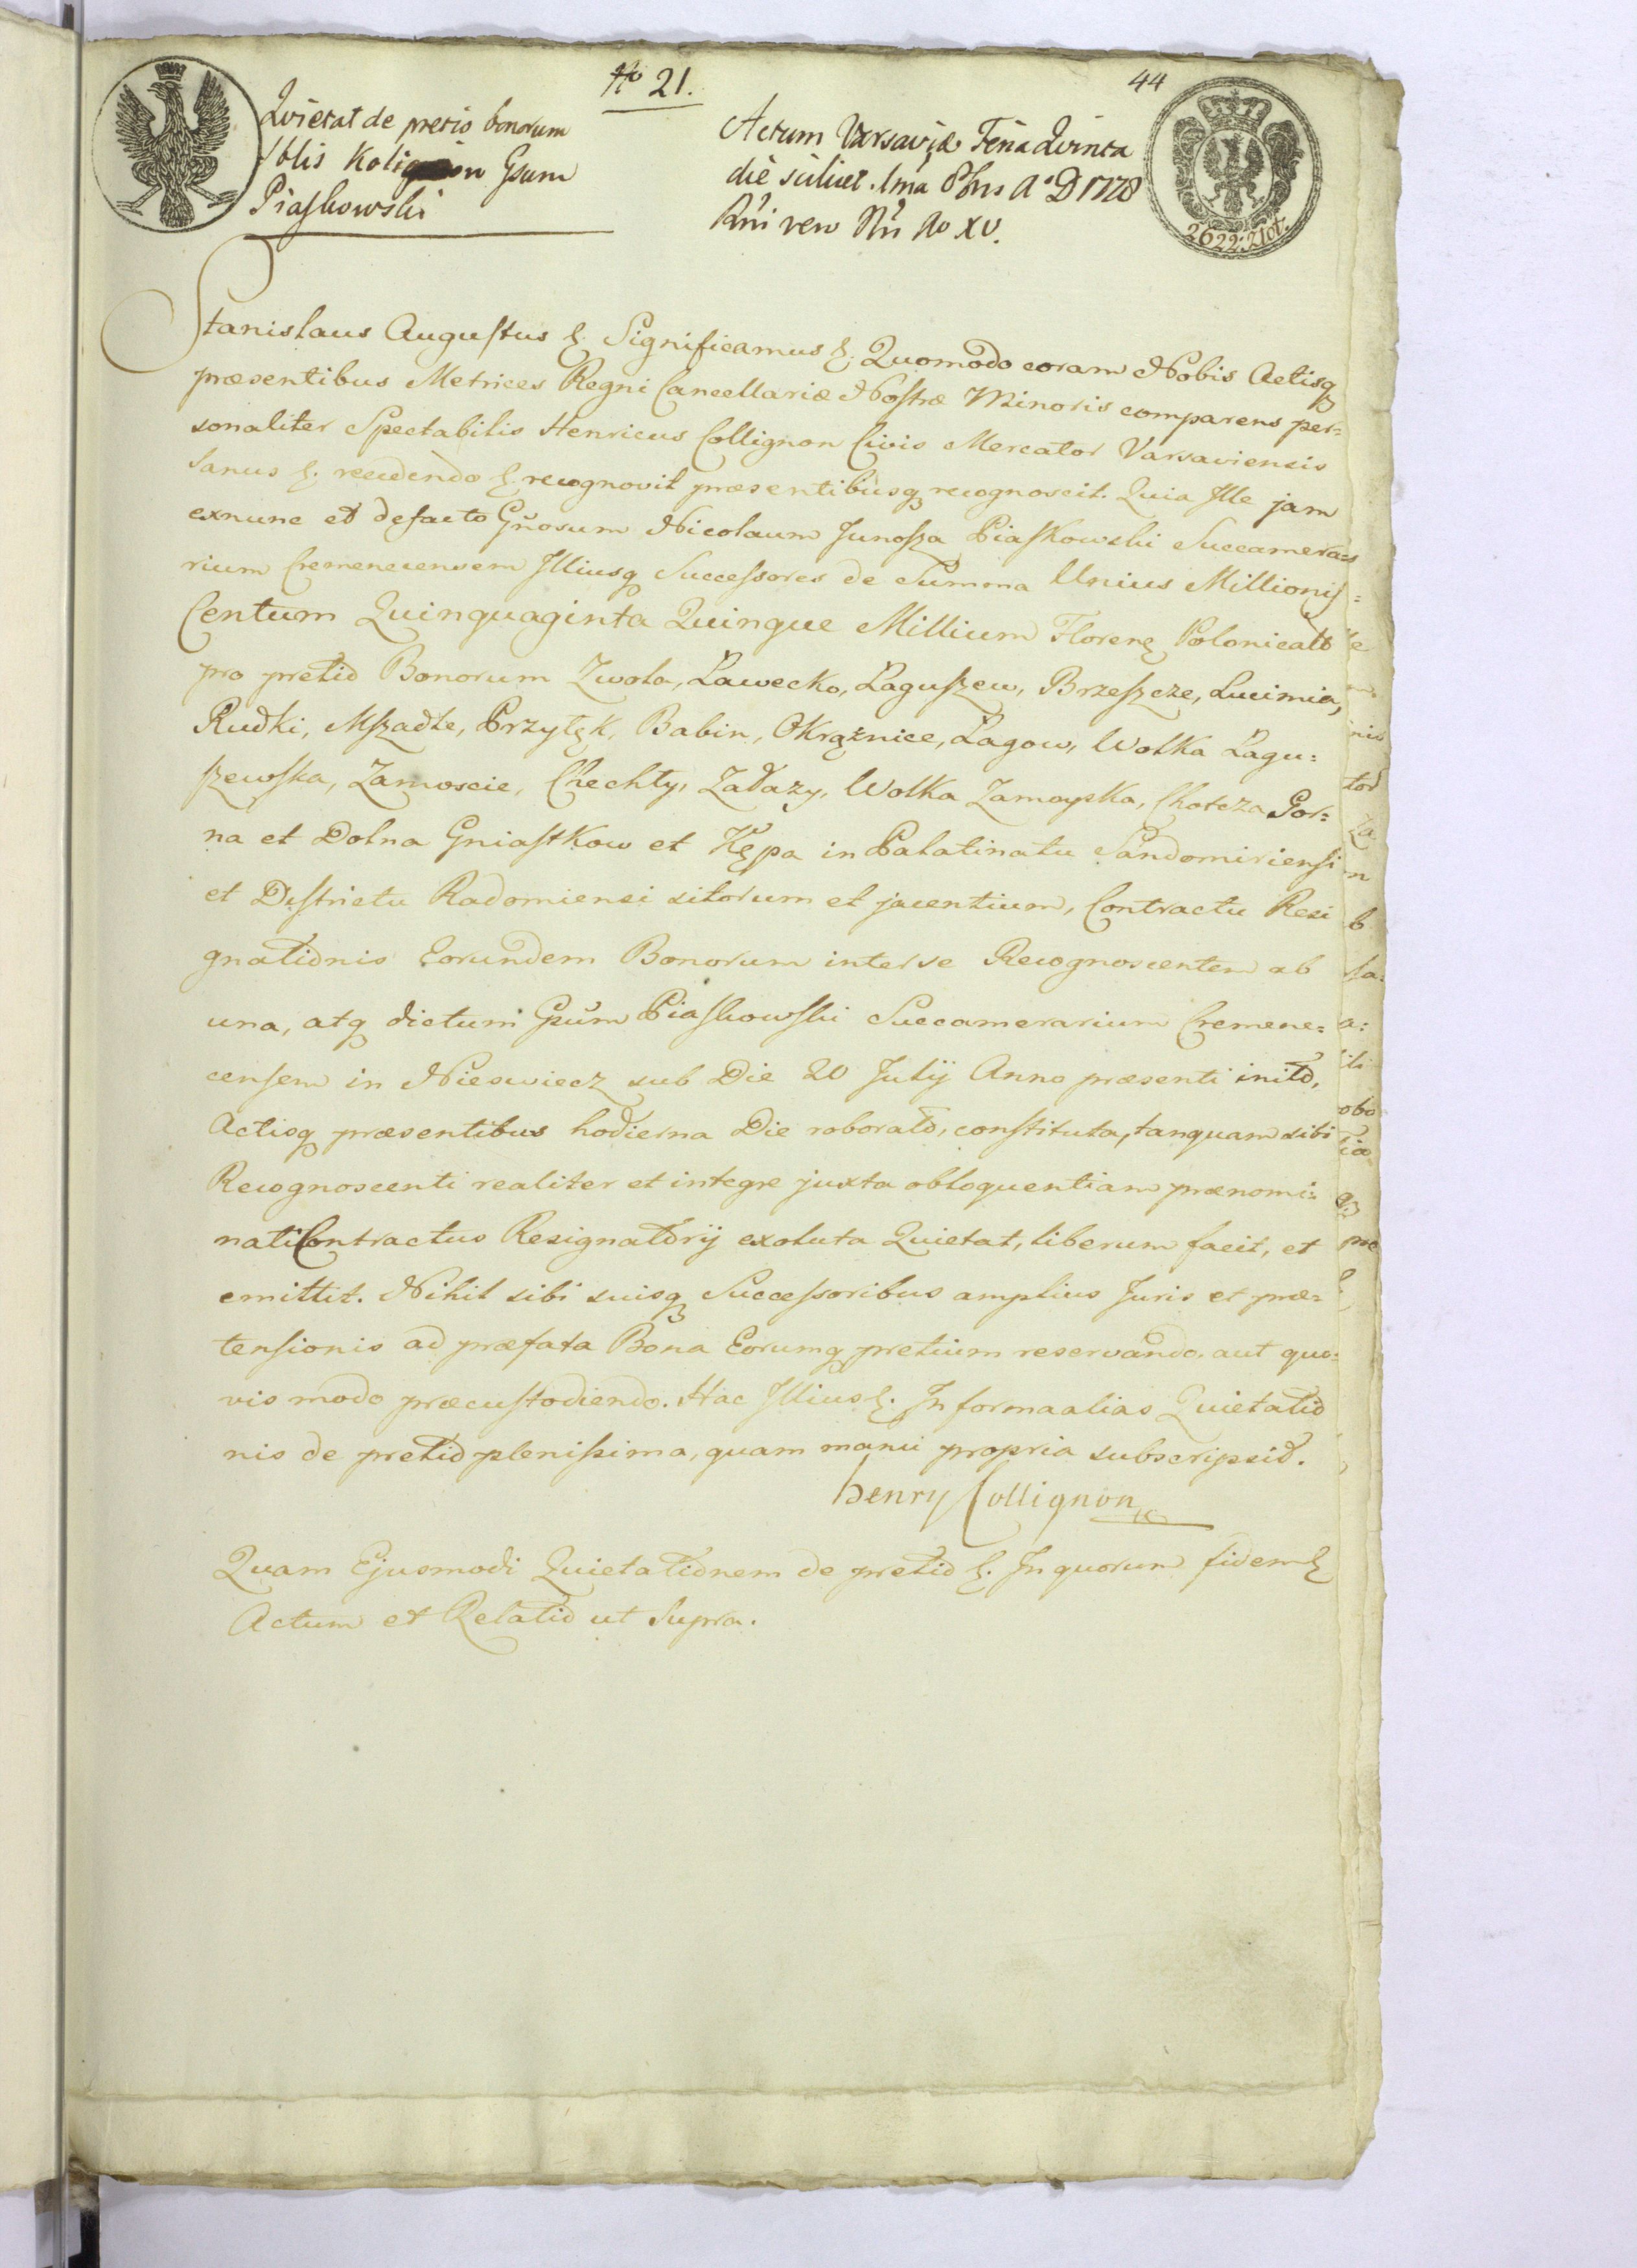 No 21.
44
Qvietat de pretio bonorum
Sblis Kolignon Gsum
Piaskowski
Actum Varsaviæ Feria Qvinta
die scilicet 1ma 8bris Ao D 1778
Rni vero Nri Ao XV.
2622: Złot.
Stanislaus Augustus &. Significamus &. Quomodo coram Nobis Actisq
præsentibus Metrices Regni Cancellariæ Nostræ Minoris comparens per=
sonaliter Spectabilis Henricus Collignon Civis Mercator Varsaviensis
Sanus &. recedendo &. recognovit præsentibusq recognoscit. Quia Ille jam
exnunc et defacto Gñosum Nicolaum Junosza Piaskowski Succamera=
rium Cremenecensem Illiusq Successores de Summa Unius Millionis
Centum Quinquaginta Quinque Millium Floren Polonicalt
pro pretio Bonorum Zwola, Ławecko, Łaguszew, Brzeszcze, Lucimia,
Rudki, Mszadle, Przyłęk, Babin, Okrążnice, Łagow, Wolka Łagu=
szewska, Zamoscie, Chechły, Zadaży, Wolka Zamoyska, Chotcza Gor=
na et Dolna Gniastkow et Kępa in Palatinatu Sandomiriensi
et Districtu Radomiensi sitorum et jacentium, Contractu Resi
gnationis Eorundem Bonorum inter se Recognoscentem ab
una, atq dictum Gsum Piaskowski Succamerarium Cremene=
censem in Nieswiecz sub Die 20 Julij Anno præsenti inito,
Actisq præsentibus hodierna Die roborato, constituta, tanquam sibi
Recognoscenti realiter et integre juxta obloquentiam prænomi=
nati Contractus Resignatorij exoluta Quietat, liberum facit, et
emittit. Nihil sibi suisq Successoribus amplius Juris et præ=
tensionis ad præfata Bona Eorumq pretium reservando. aut quo=
vis modo præcustodiendo. Hac Illius &. In forma alias Quietatio
nis de pretio plenissima, quam manu propria subscripsit.
henry Collignon
Quam Ejusmodi Quietationem de pretio &. In quorum fidem &
Actum et Relatio ut Supra.